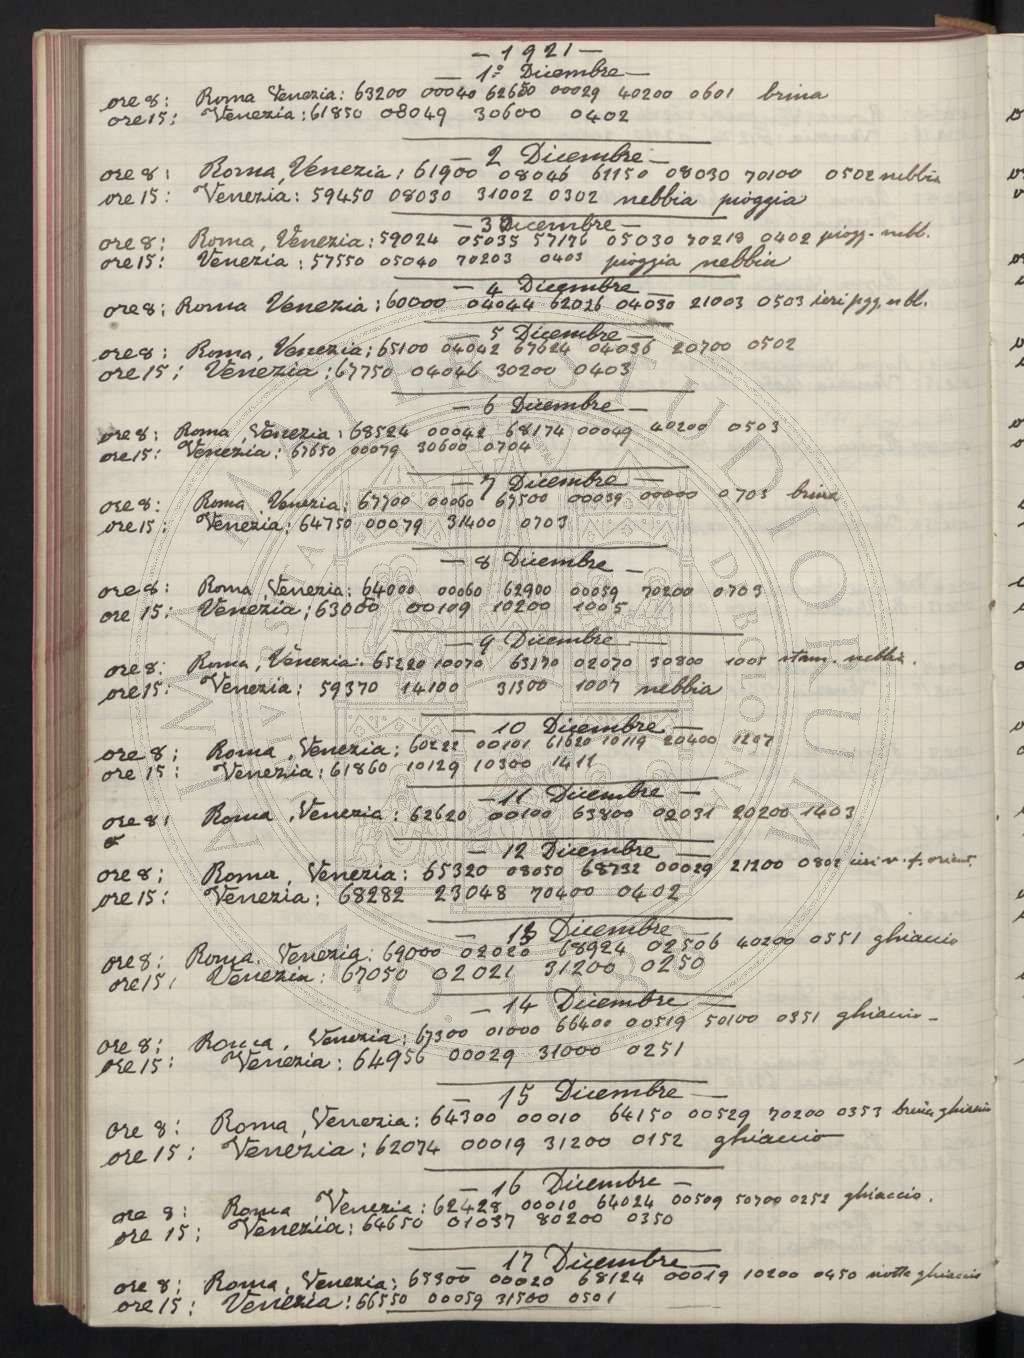 — 1921 —
— 1º Dicembre —
ore 8: Roma Venezia: 63200 00040 62650 00029 40200 0601 brina
ore 15: Venezia: 61850 08049 30600 0402
— 2 Dicembre —
ore 8: Roma, Venezia: 61900 08046 61150 08030 70100 0502 nebbia
ore 15: Venezia: 59450 08030 31002 0302 nebbia pioggia
— 3 Dicembre —
ore 8: Roma, Venezia: 59024 05035 57176 05030 70218 0402 piogg. nebb.
ore 15: Venezia: 57550 05040 70203 0403 pioggia nebbia
— 4 Dicembre —
ore 8: Roma Venezia: 60000 04044 62026 04030 21003 0503 ieri pgg. nbl.
— 5 Dicembre —
ore 8: Roma, Venezia: 65100 04042 67624 04036 20700 0502
ore 15: Venezia: 67750 04046 30200 0403
— 6 Dicembre —
ore 8: Roma, Venezia: 68524 00042 68174 00049 40200 0503
ore 15: Venezia: 67650 00079 30600 0704
— 7 Dicembre —
ore 8: Roma, Venezia: 67700 00060 67500 00039 00000 0703 brina
ore 15: Venezia: 64750 00079 31400 0703
— 8 Dicembre —
ore 8: Roma, Venezia: 64000 00060 62900 00059 70200 0703
ore 15: Venezia: 63000 00109 10200 1005
— 9 Dicembre —
ore 8: Roma, Venezia: 65220 10070 63170 02070 30800 1005 stam. nebbia.
ore 15: Venezia: 59370 14100 31300 1007 nebbia
— 10 Dicembre —
ore 8: Roma, Venezia: 60222 00101 61620 10119 20400 1207
ore 15: Venezia: 61860 10129 10300 1411
— 11 Dicembre —
ore 8: Roma, Venezia: 62620 00100 63800 02031 20200 1403
— 12 Dicembre —
ore 8: Roma, Venezia: 65320 08050 68732 00029 21200 0802 ieri v. f. orient.
ore 15: Venezia: 68282 23048 70400 0402
— 13 Dicembre —
ore 8: Roma, Venezia: 69000 02020 68924 02506 40200 0551 ghiaccio
ore 15: Venezia: 67050 02021 31200 0250
— 14 Dicembre —
ore 8: Roma, Venezia: 67300 01000 66400 00519 50100 0351 ghiaccio —
ore 15: Venezia: 64956 00029 31000 0251
— 15 Dicembre —
ore 8: Roma, Venezia: 64300 00010 64150 00529 70200 0353 brina ghiaccio
ore 15: Venezia: 62074 00019 31200 0152 ghiaccio
— 16 Dicembre —
ore 8: Roma, Venezia: 62428 00010 64024 00509 50700 0252 ghiaccio.
ore 15: Venezia: 64650 01037 80200 0350
— 17 Dicembre —
ore 8: Roma, Venezia: 65300 00020 68124 00019 10200 0450 notte ghiaccio
ore 15: Venezia: 66550 00059 31500 0501